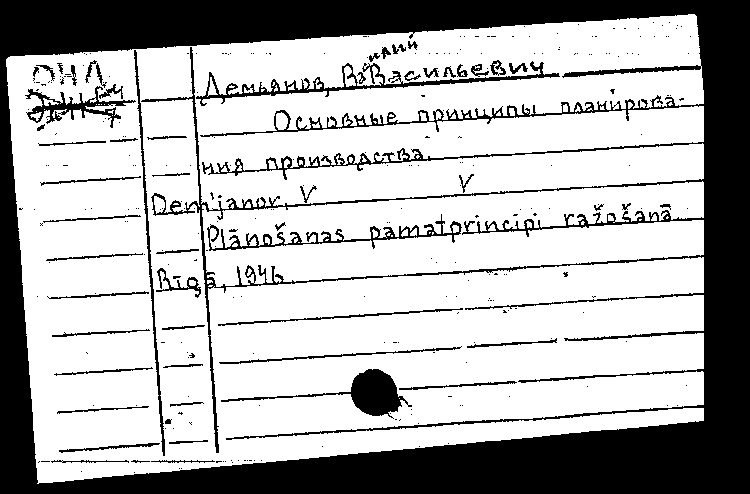 ОНЛ
Демьянов, Василий Васильевич
Основные принципы планирова-
ния производства.
Dem'janov, V V
Plānošanas pamatprincipi ražošanā
Rīgā, 1946.